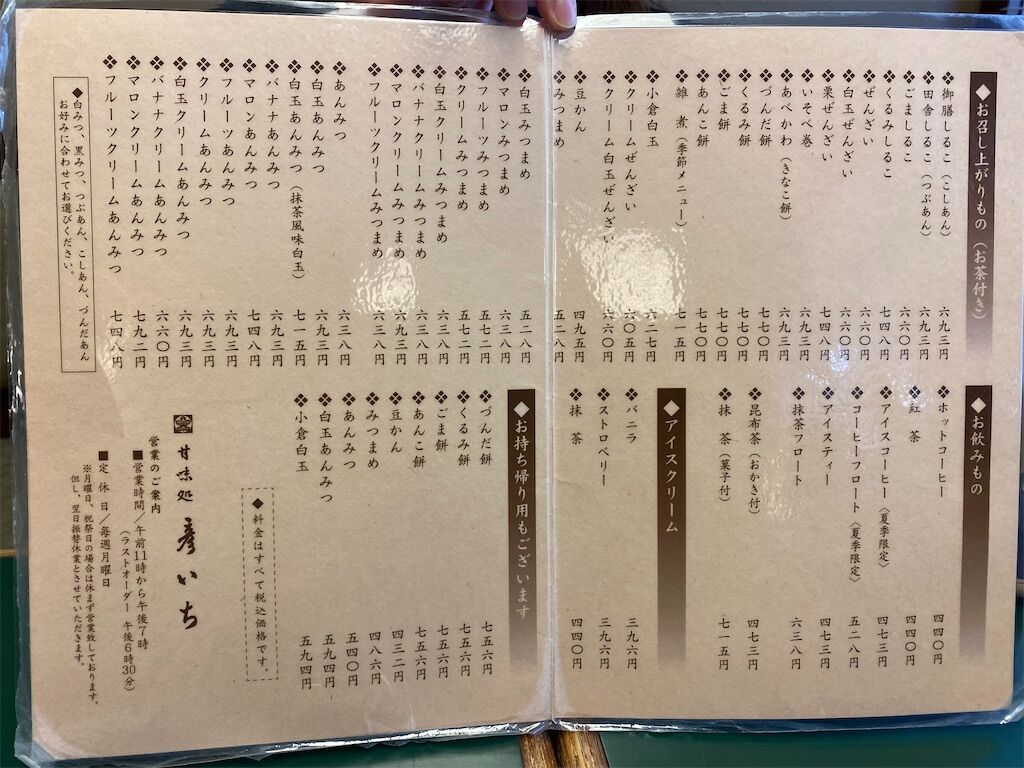 ◆お召し上がりもの（お茶付き）
❖御膳しるこ（こしあん） 六九三円
❖田舎しるこ（つぶあん） 六九三円
❖ごましるこ 六六〇円
❖くるみしるこ 七四八円
❖ぜんざい 六六〇円
❖白玉ぜんざい 六六〇円
❖栗ぜんざい 七四八円
❖いそべ巻 六九三円
❖あべかわ（きなこ餅） 六九三円
❖づんだ餅 七七〇円
❖くるみ餅 七七〇円
❖ごま餅 七七〇円
❖あんこ餅 七七〇円
❖雑　煮（季節メニュー） 七一五円
❖小倉白玉 六二七円
❖クリームぜんざい 六〇五円
❖クリーム白玉ぜんざい 六六〇円
❖豆かん 四九五円
❖みつまめ 五二八円
❖白玉みつまめ 五二八円
❖マロンみつまめ 六三八円
❖フルーツみつまめ 五七二円
❖クリームみつまめ 五七二円
❖白玉クリームみつまめ 六三八円
❖バナナクリームみつまめ 六三八円
❖マロンクリームみつまめ 六九三円
❖フルーツクリームみつまめ 六三八円
❖あんみつ 六三八円
❖白玉あんみつ 六九三円
❖白玉あんみつ（抹茶風味白玉） 七一五円
❖バナナあんみつ 六九三円
❖マロンあんみつ 七四八円
❖フルーツあんみつ 六九三円
❖クリームあんみつ 六九三円
❖白玉クリームあんみつ 六九三円
❖バナナクリームあんみつ 六六〇円
❖マロンクリームあんみつ 七九二円
❖フルーツクリームあんみつ 七四八円
◆白みつ、黒みつ、つぶあん、こしあん、づんだあん
お好みに合わせてお選びください。
◆お飲みもの
❖ホットコーヒー 四四〇円
❖紅　茶 四四〇円
❖アイスコーヒー〈夏季限定〉 四七三円
❖コーヒーフロート〈夏季限定〉 五二八円
❖アイスティー 四七三円
❖抹茶フロート 六三八円
❖昆布茶（おかき付） 四七三円
❖抹　茶（菓子付） 七一五円
◆アイスクリーム
❖バニラ 三九六円
❖ストロベリー 三九六円
❖抹　茶 四四〇円
◆お持ち帰り用もございます
❖づんだ餅 七五六円
❖くるみ餅 七五六円
❖ごま餅 七五六円
❖あんこ餅 七五六円
❖豆かん 四三二円
❖みつまめ 四八六円
❖あんみつ 五四〇円
❖白玉あんみつ 五九四円
❖小倉白玉 五九四円
◆料金はすべて税込価格です。
甘味処 彦いち
営業のご案内
■営業時間／午前11時から午後7時
（ラストオーダー　午後6時30分）
■定　休　日／毎週月曜日
※月曜日、祝祭日の場合は休まず営業致しております。
但し、翌日振替休業とさせていただきます。